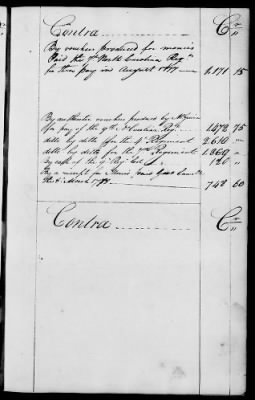 Contra Cr
By vouchers produced for monies
Paid the North Carolina Regts
for their pay in August 1777 1,171 15
By authentic voucher produced by
for pay of the 9th Carolina Regt 1478 75
ditto by ditto for the 4th Regiment 2.610 "
ditto by ditto for the 7th Regiment 1.860 "
By cash of the 9 Regt 120 "
By a receipt for Monies paid
the 6 March 1778 748 60
Contra Cr